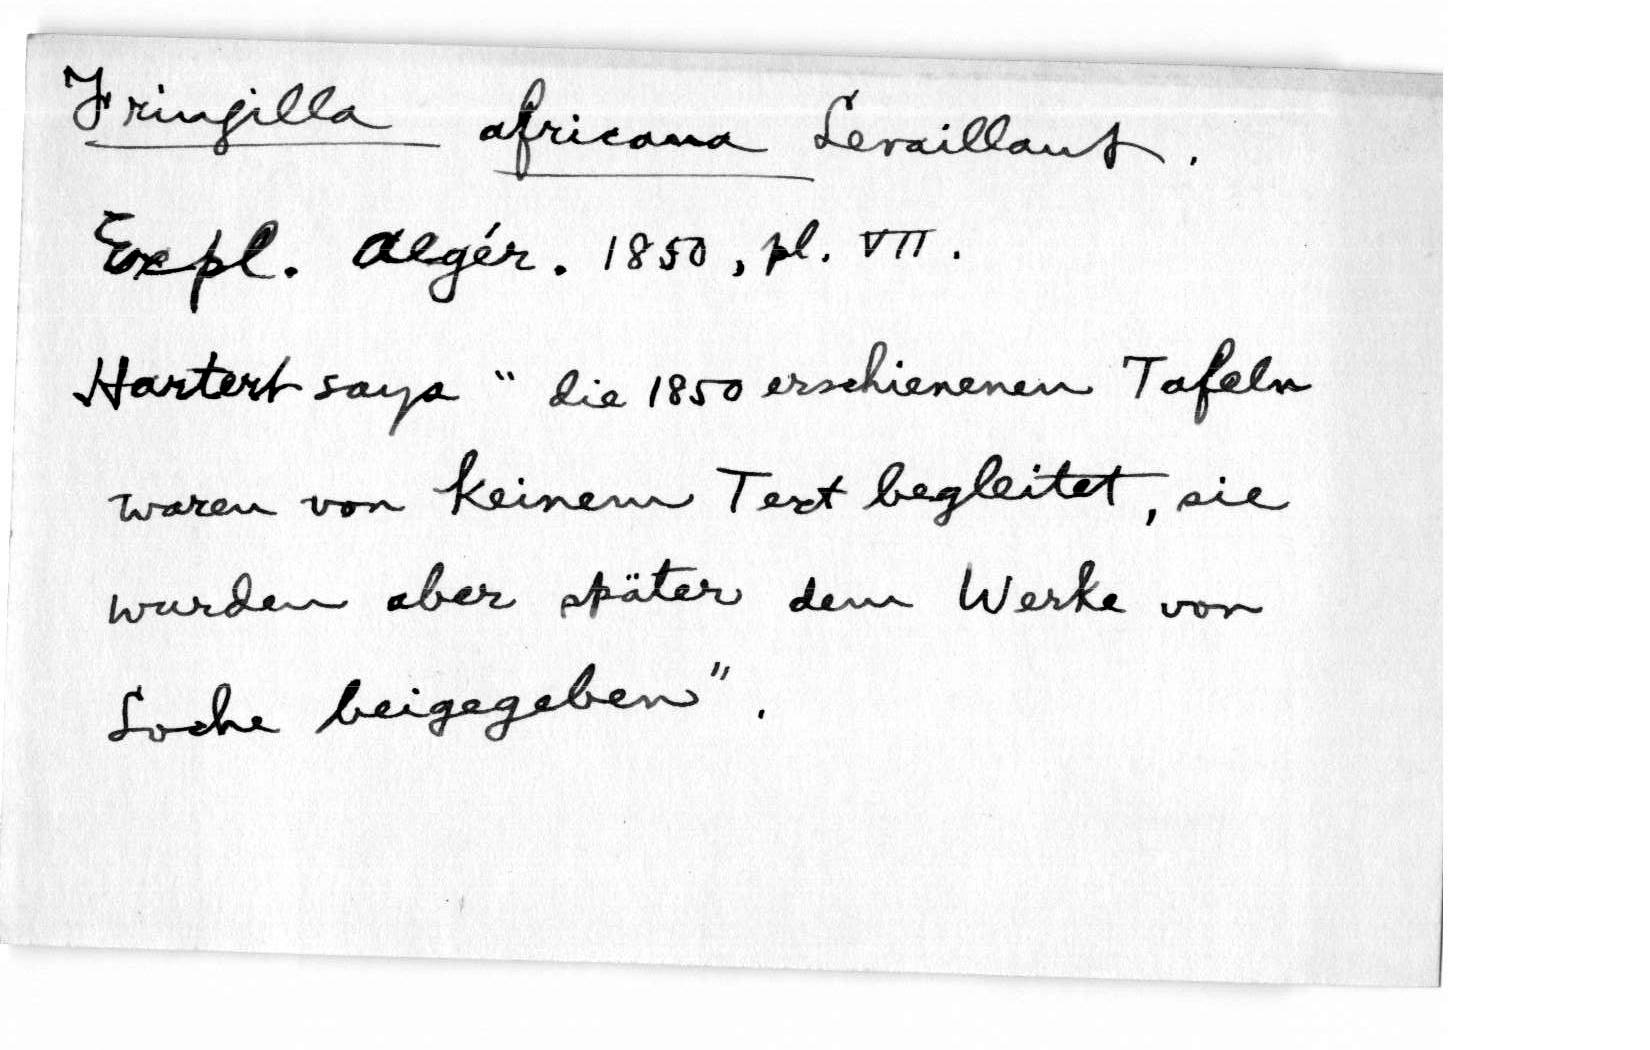 Fringilla africana Levaillant.
Expl. Algér. 1850, pl. VII.
Hartert says "die 1850 erschienenen Tafeln
waren von keinem Text begleitet, sie
wurden aber später dem Werke von
Loche beigegeben".